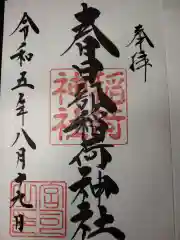 奉拝
春日部稲荷神社
稲荷
神社
令和五年八月十九日